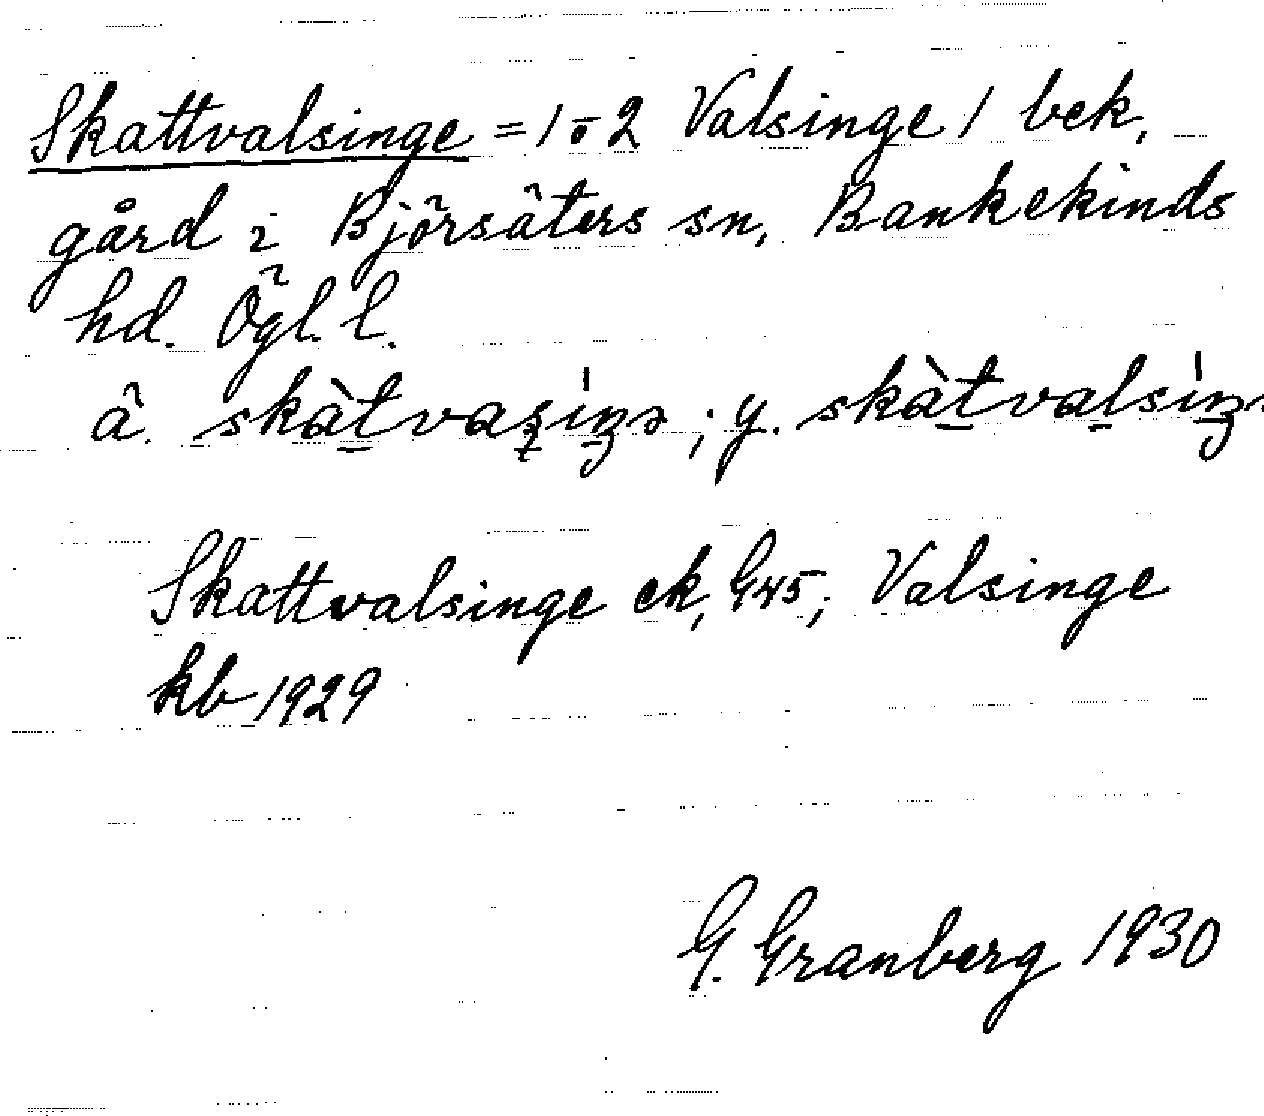 Skattvalsinge = 1 o 2 Valsinge / bek.,
gård i Björsäters sn, Bankekinds
hd. Ögl. l.
ä. skàtvaʂiŋə; y. skàtvalsiŋ
Skattvalsinge ek, G45; Valsinge
kb 1929
G. Granberg 1930